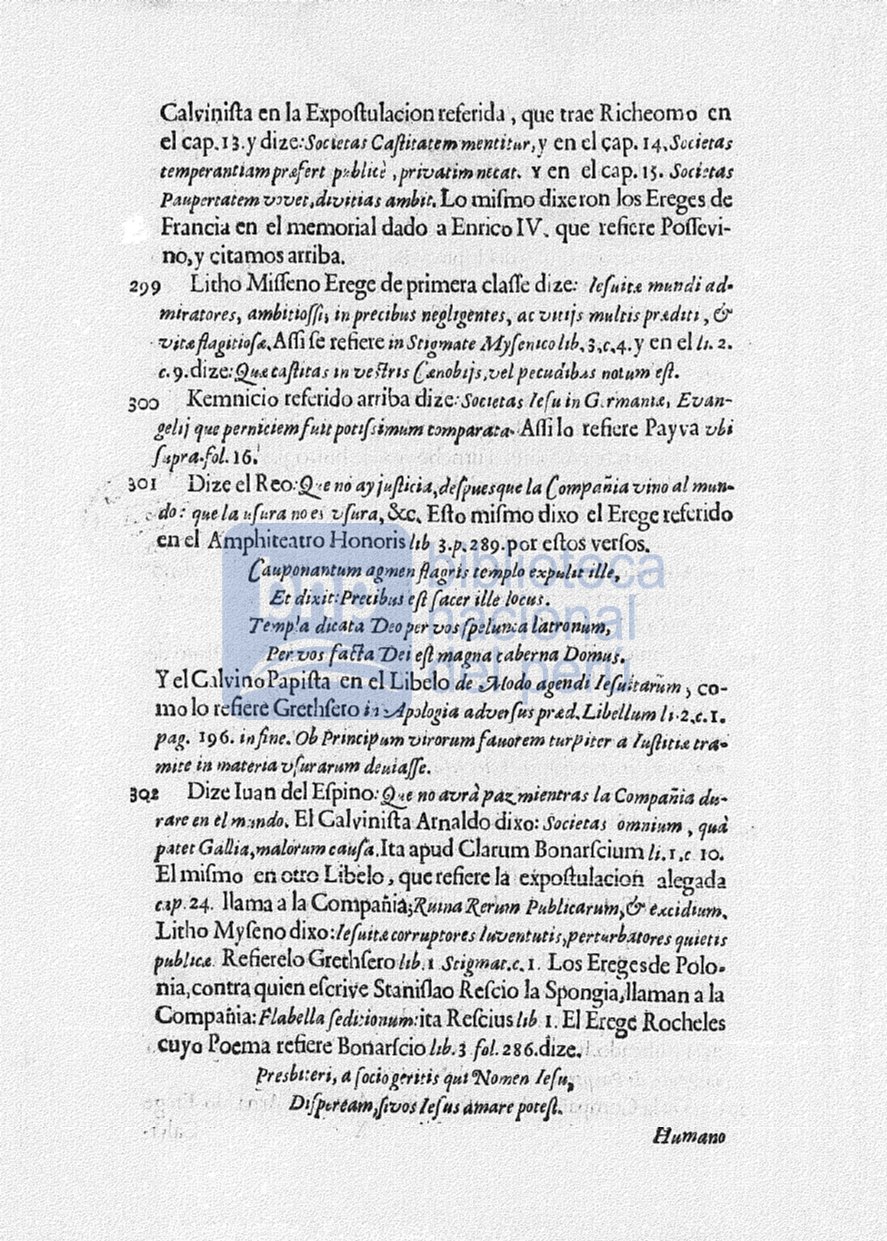 Calvinista en la Expostulacion referida, que trae Richeomo en
el cap. 13. y dize: Societas Castitatem mentitur, y en el cap. 14. Societas
temperantiam præfert publicè, privatim necat. Y en el cap. 15. Societas
Paupertatem vovet, divitias ambit. Lo mismo dixeron los Ereges de
Francia en el memorial dado a Enrico IV. que refiere Possevi-
no, y citamos arriba.
299 Litho Misseno Erege de primera classe dize: Iesuitæ mundi ad-
miratores, ambitiossi, in precibus negligentes, ac vitijs multis præditi, &
vitæ flagitiosæ. Assi se refiere in Stigmate Mysenico lib. 3. c. 4. y en el li. 2.
c. 9. dize: Quæ castitas in vestris Cænobijs, vel pecudibus notum est.
300 Kemnicio referido arriba dize: Societas Iesu in Germaniæ, Evan-
gelij que perniciem fuit potissimum comparata. Assi lo refiere Payva vbi
supra. fol. 16.
301 Dize el Reo: Que no ay justicia, despues que la Compañia vino al mun-
do: que la usura no es vsura, &c. Esto mismo dixo el Erege referido
en el Amphiteatro Honoris lib 3. p. 289. por estos versos.
Cauponantum agmen flagris templo expulit ille,
Et dixit: Precibus est sacer ille locus.
Templa dicata Deo per vos spelunca latronum,
Per vos facta Dei est magna taberna Domus.
Y el Calvino Papista en el Libelo de Modo agendi Iesuitarum, co-
mo lo refiere Grethsero in Apologia adversus præd. Libellum li. 2. c. 1.
pag. 196. in fine. Ob Principum virorum favorem turpiter a Iustitiæ tra-
mite in materia vsurarum deuiasse.
302 Dize Iuan del Espino: Que no avrà paz mientras la Compañia du-
rare en el mundo. El Calvinista Arnaldo dixo: Societas omnium, quà
patet Gallia, malorum causa. Ita apud Clarum Bonarscium li. 1. c 10.
El mismo en otro Libelo, que refiere la expostulacion alegada
cap. 24. llama a la Compañia; Ruina Rerum Publicarum, & excidium.
Litho Myseno dixo: Iesuitæ corruptores Iuventutis, perturbatores quietis
publicæ. Refierelo Grethsero lib. 1 Stigmat. c. 1. Los Ereges de Polo-
nia, contra quien escrive Stanislao Rescio la Spongia, llaman a la
Compañia: Flabella seditionum: ita Rescius lib 1. El Erege Rocheles
cuyo Poema refiere Bonarscio lib. 3 fol. 286. dize.
Presbiteri, a socio geritis qui Nomen Iesu,
Dispeream, si vos Iesus amare potest.
Humano
bnp biblioteca
nacional
del perú